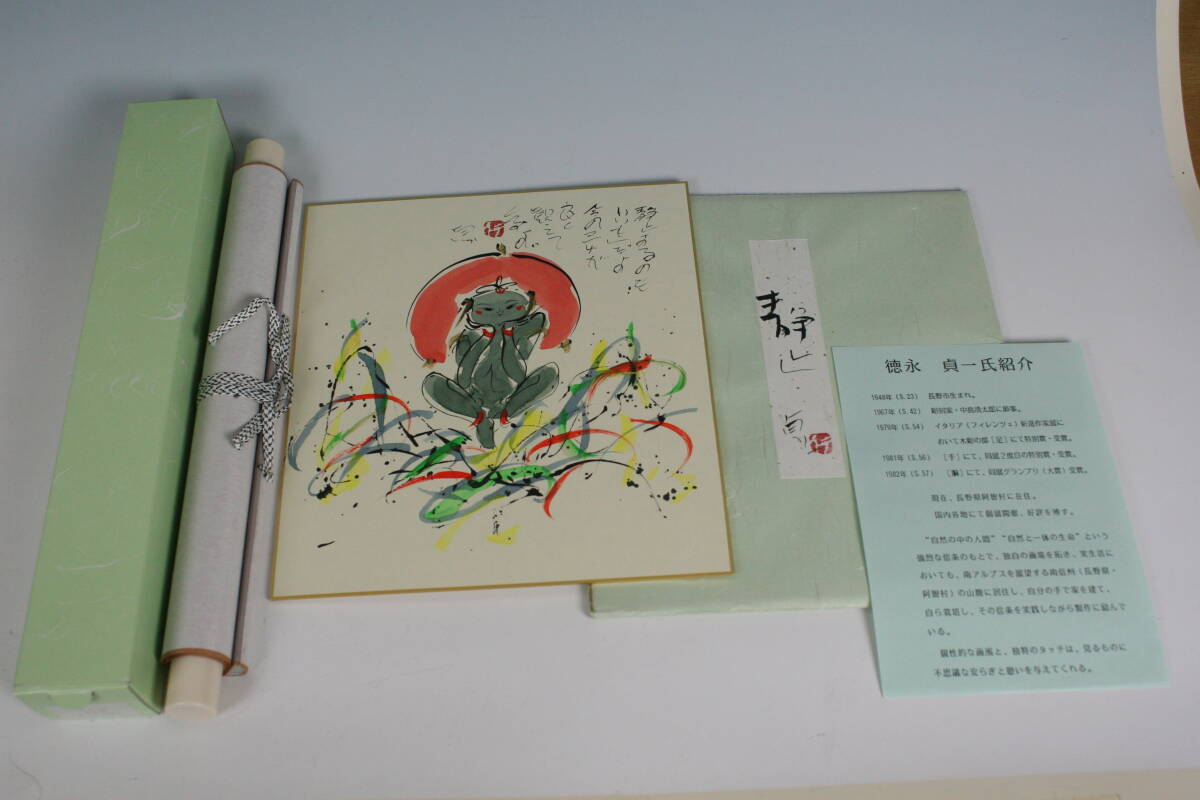 静止するのも
いいもんだよ
今の三十が
良く
観えて
貞
静止
貞
徳永 貞一氏紹介
1948年(S.23) 長野市生まれ。
1967年(S.42) 彫刻家・中島清太郎に師事。
1979年(S.54) イタリア(フィレンツェ)新選作家展に
おいて木彫の部[足]にて特別賞・受賞。
1981年(S.56) [手]にて、同展2度目の特別賞・受賞。
1982年(S.57) [胸]にて、同展グランプリ(大賞)受賞。
現在、長野県阿智村に在住。
国内各地にて個展開催、好評を博す。
“自然の中の人間”“自然と一体の生命”という
強烈な信条のもとで、独自の画境を拓き、実生活に
おいても、南アルプスを展望する南信州(長野県・
阿智村)の山麓に居住し、自分の手で家を建て、
自ら栽培し、その信条を実践しながら製作に励んで
いる。
個性的な画風と、独特のタッチは、見るものに
不思議な安らぎと憩いを与えてくれる。